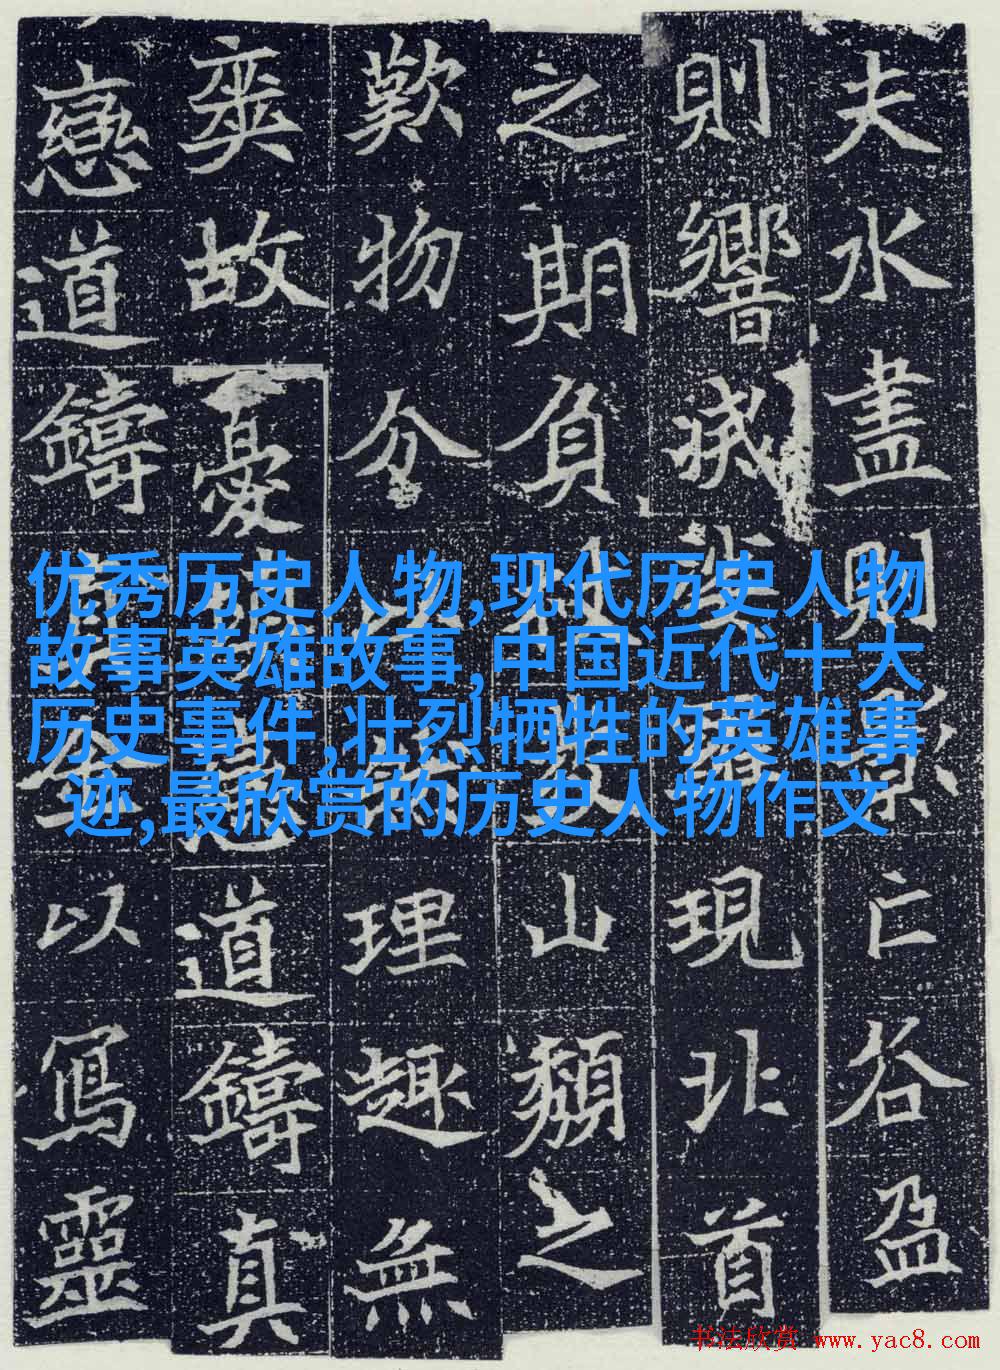 夫水盡則亡谷盈
則響滅現北首
之期負山頹之
歎物分理趣無
奕故憂道鑄真
戀道鑄金以寫靈
优秀历史人物,现代历史人物
故事英雄故事,中国近代十大
历史事件,壮烈牺牲的英雄事
迹,最欣赏的历史人物作文
书法欣赏 www.yac8.com